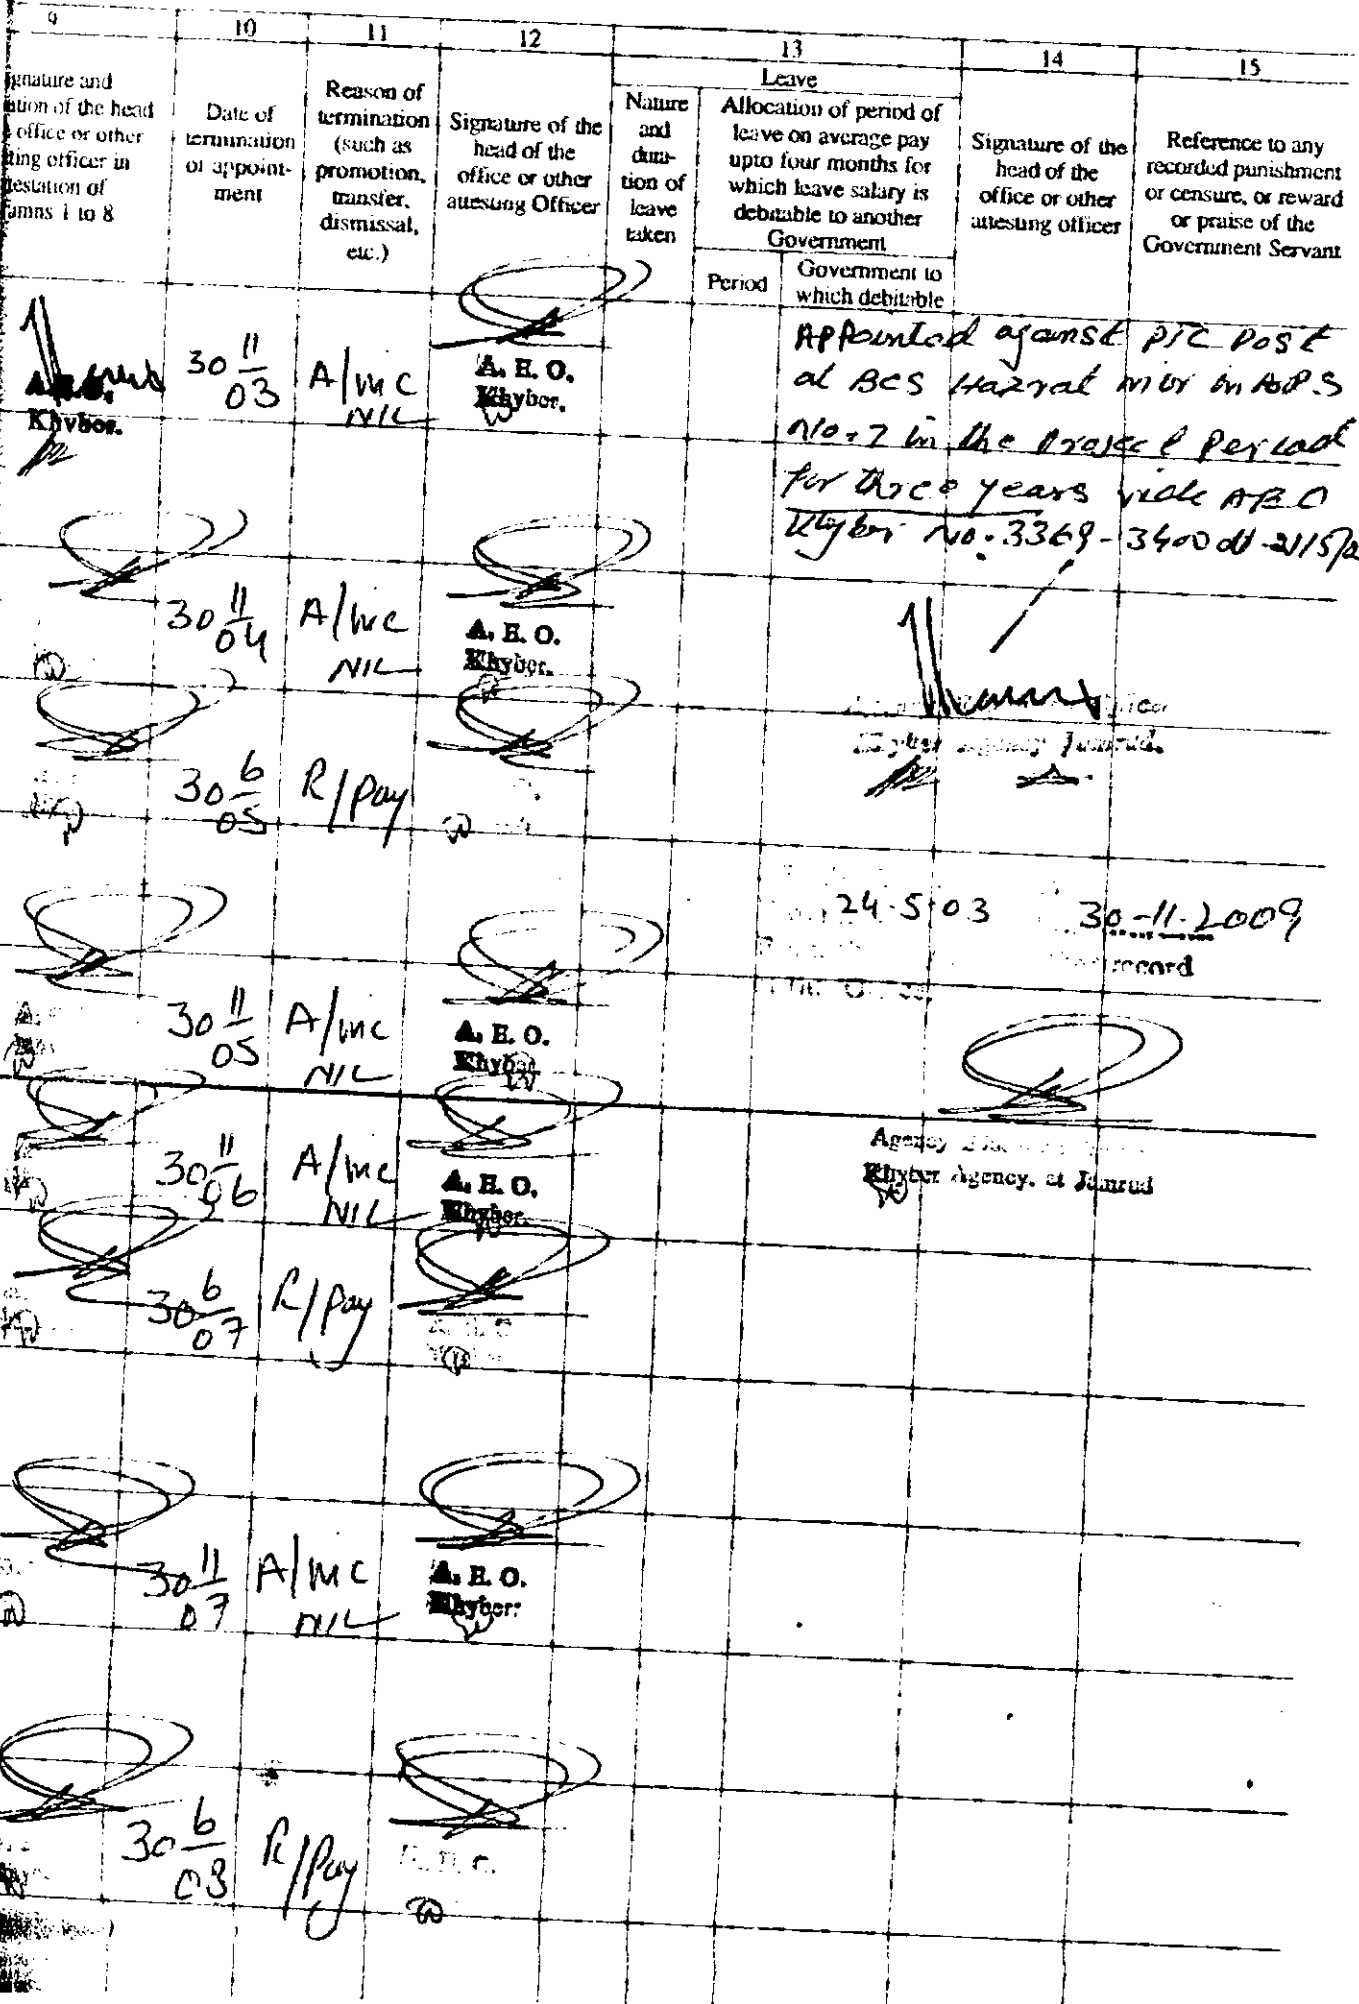 9 10 11 12 13 14 15
Leave
gnature and
ation of the head
office or other
ting officer in
testation of
umns 1 to 8
Date of
termination
of appoint-
ment
Reason of
termination
(such as
promotion,
transfer,
dismissal,
etc.)
Signature of the
head of the
office or other
attesting Officer
Nature
and
dura-
tion of
leave
taken
Allocation of period of
leave on average pay
upto four months for
which leave salary is
debitable to another
Government
Period
Government to
which debitable
Signature of the
head of the
office or other
attesting officer
Reference to any
recorded punishment
or censure, or reward
or praise of the
Government Servant
Khyber.
30 11/03 A/inc
NIL
A. E. O.
Khyber.
Appointed against PTC Post
at BCS Hazrat
No. 7 in the Project Period
for three years vide AEO
Khyber No. 3369-3400 dt
30 11/04 A/inc
NIL
A. E. O.
Khyber.
Khyber Agency Jamrud.
30 6/05 R/Pay
24.5.03 30-11-2009
record
30 11/05 A/inc
NIL
A. E. O.
Khyber
Agency
Khyber Agency, at Jamrud
30 11/06 A/inc
NIL
A. E. O.
Khyber.
30 6/07 R/Pay
30 11/07 A/inc
NIL
A. E. O.
Khyber.
30 6/08 R/Pay